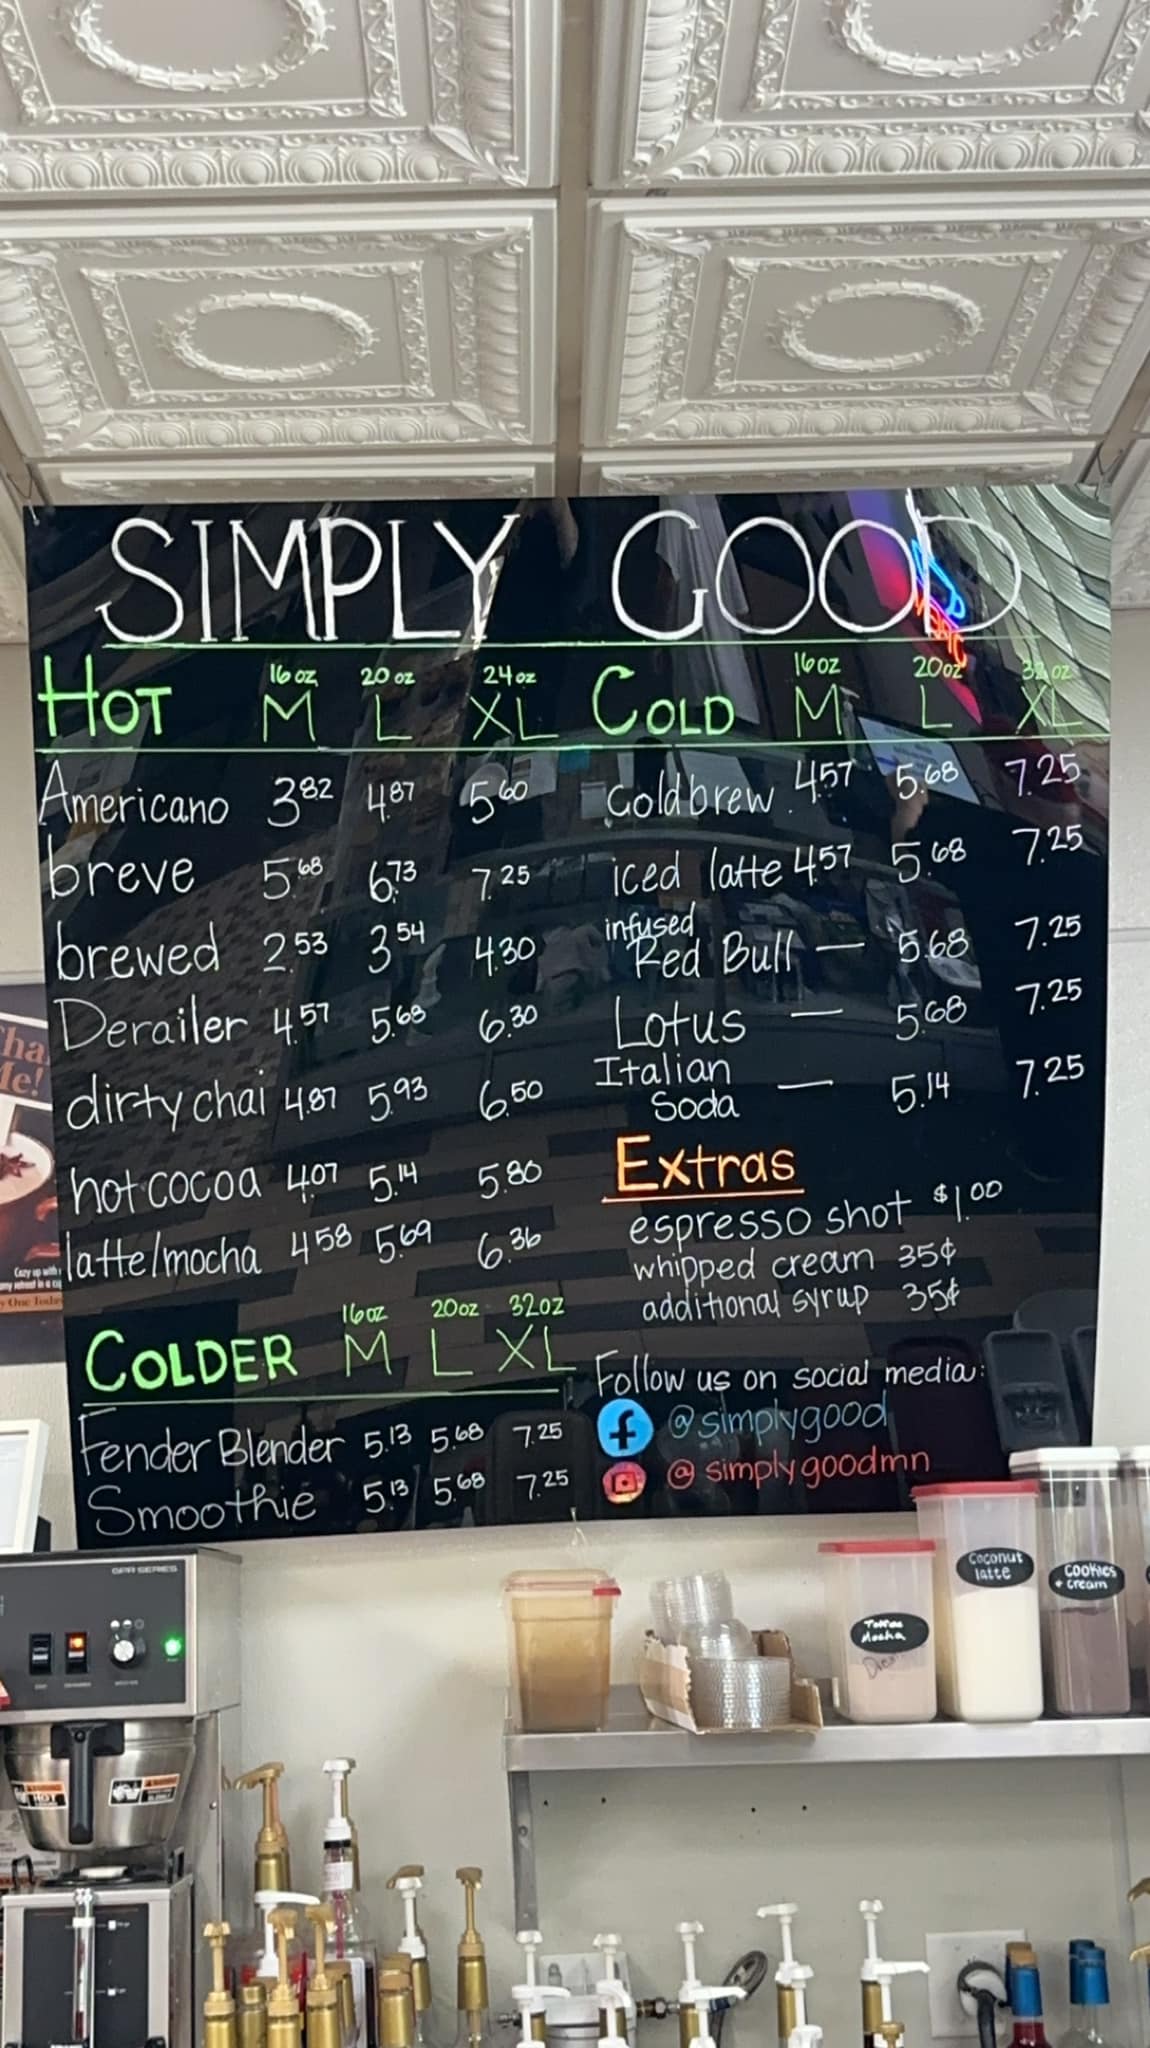 SIMPLY GOOD
HOT 16 oz M 20 oz L 24 oz XL
Americano 3.82 4.87 5.60
breve 5.68 6.73 7.25
brewed 2.53 3.54 4.30
Derailer 4.57 5.68 6.30
dirty chai 4.87 5.93 6.50
hot cocoa 4.07 5.14 5.80
latte/mocha 4.58 5.69 6.36
COLDER 16oz M 20oz L 32oz XL
Fender Blender 5.13 5.68 7.25
Smoothie 5.13 5.68 7.25
COLD 16oz M 20oz L 32oz XL
cold brew 4.57 5.68 7.25
iced latte 4.57 5.68 7.25
infused
Red Bull — 5.68 7.25
Lotus — 5.68 7.25
Italian
Soda — 5.14 7.25
Extras
espresso shot $1.00
whipped cream 35¢
additional syrup 35¢
Follow us on social media:
@simplygood
@simplygoodmn
Coconut
latte
Cookies
+ cream
Toffee
Mocha
HOT